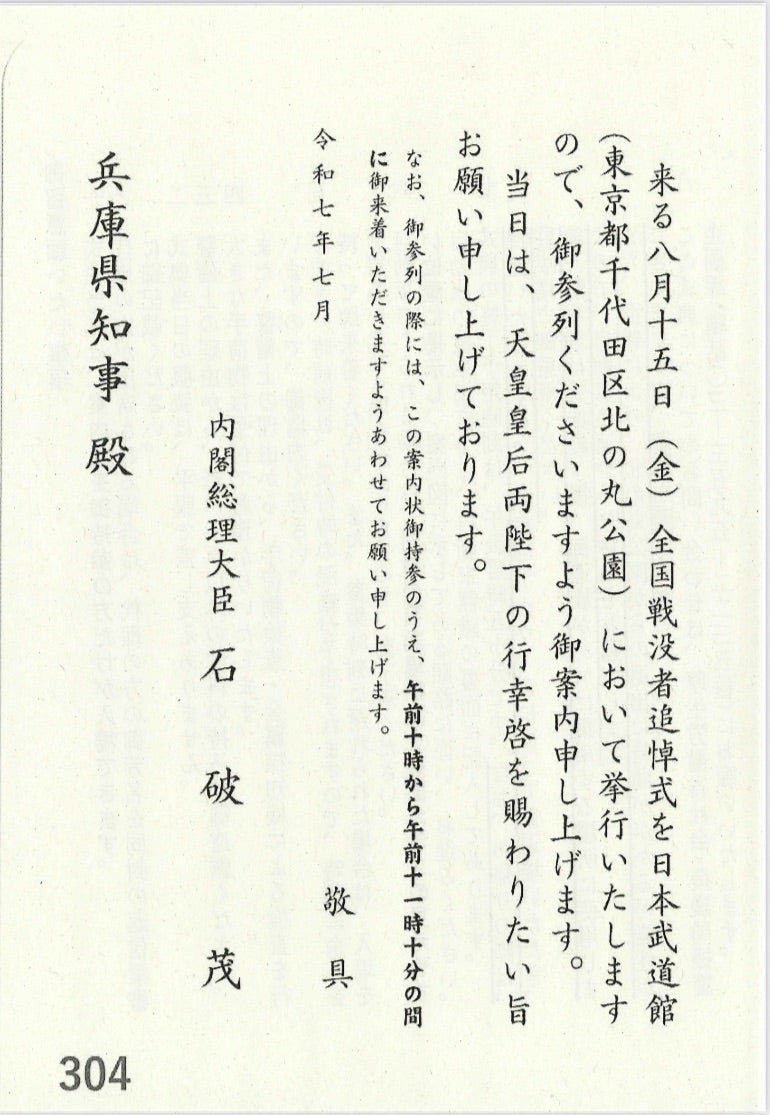 来る八月十五日（金）全国戦没者追悼式を日本武道館
（東京都千代田区北の丸公園）において挙行いたします
ので、御参列くださいますよう御案内申し上げます。
当日は、天皇皇后両陛下の行幸啓を賜わりたい旨
お願い申し上げております。
なお、御参列の際には、この案内状御持参のうえ、午前十時から午前十一時十分の間
に御来着いただきますようあわせてお願い申し上げます。
敬具
令和七年七月
内閣総理大臣 石破茂
兵庫県知事殿
304